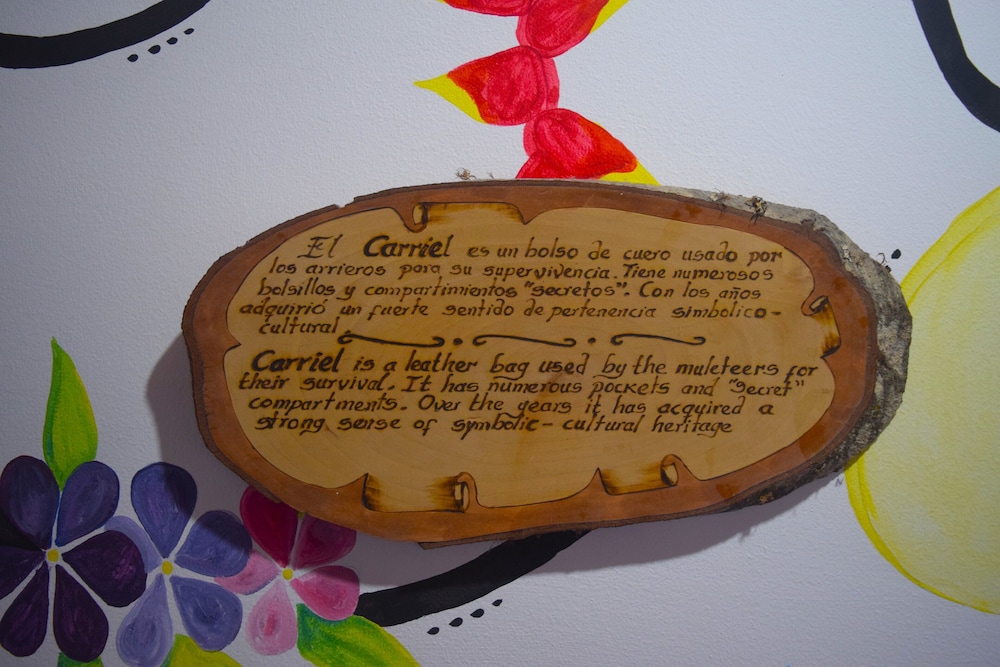 El Carriel es un bolso de cuero usado por
los arrieros para su supervivencia. Tiene numerosos
bolsillos y compartimientos "secretos". Con los años
adquirió un fuerte sentido de pertenencia simbolico-
cultural
Carriel is a leather bag used by the muleteers for
their survival. It has numerous pockets and "secret"
compartments. Over the years it has acquired a
strong sense of symbolic - cultural heritage